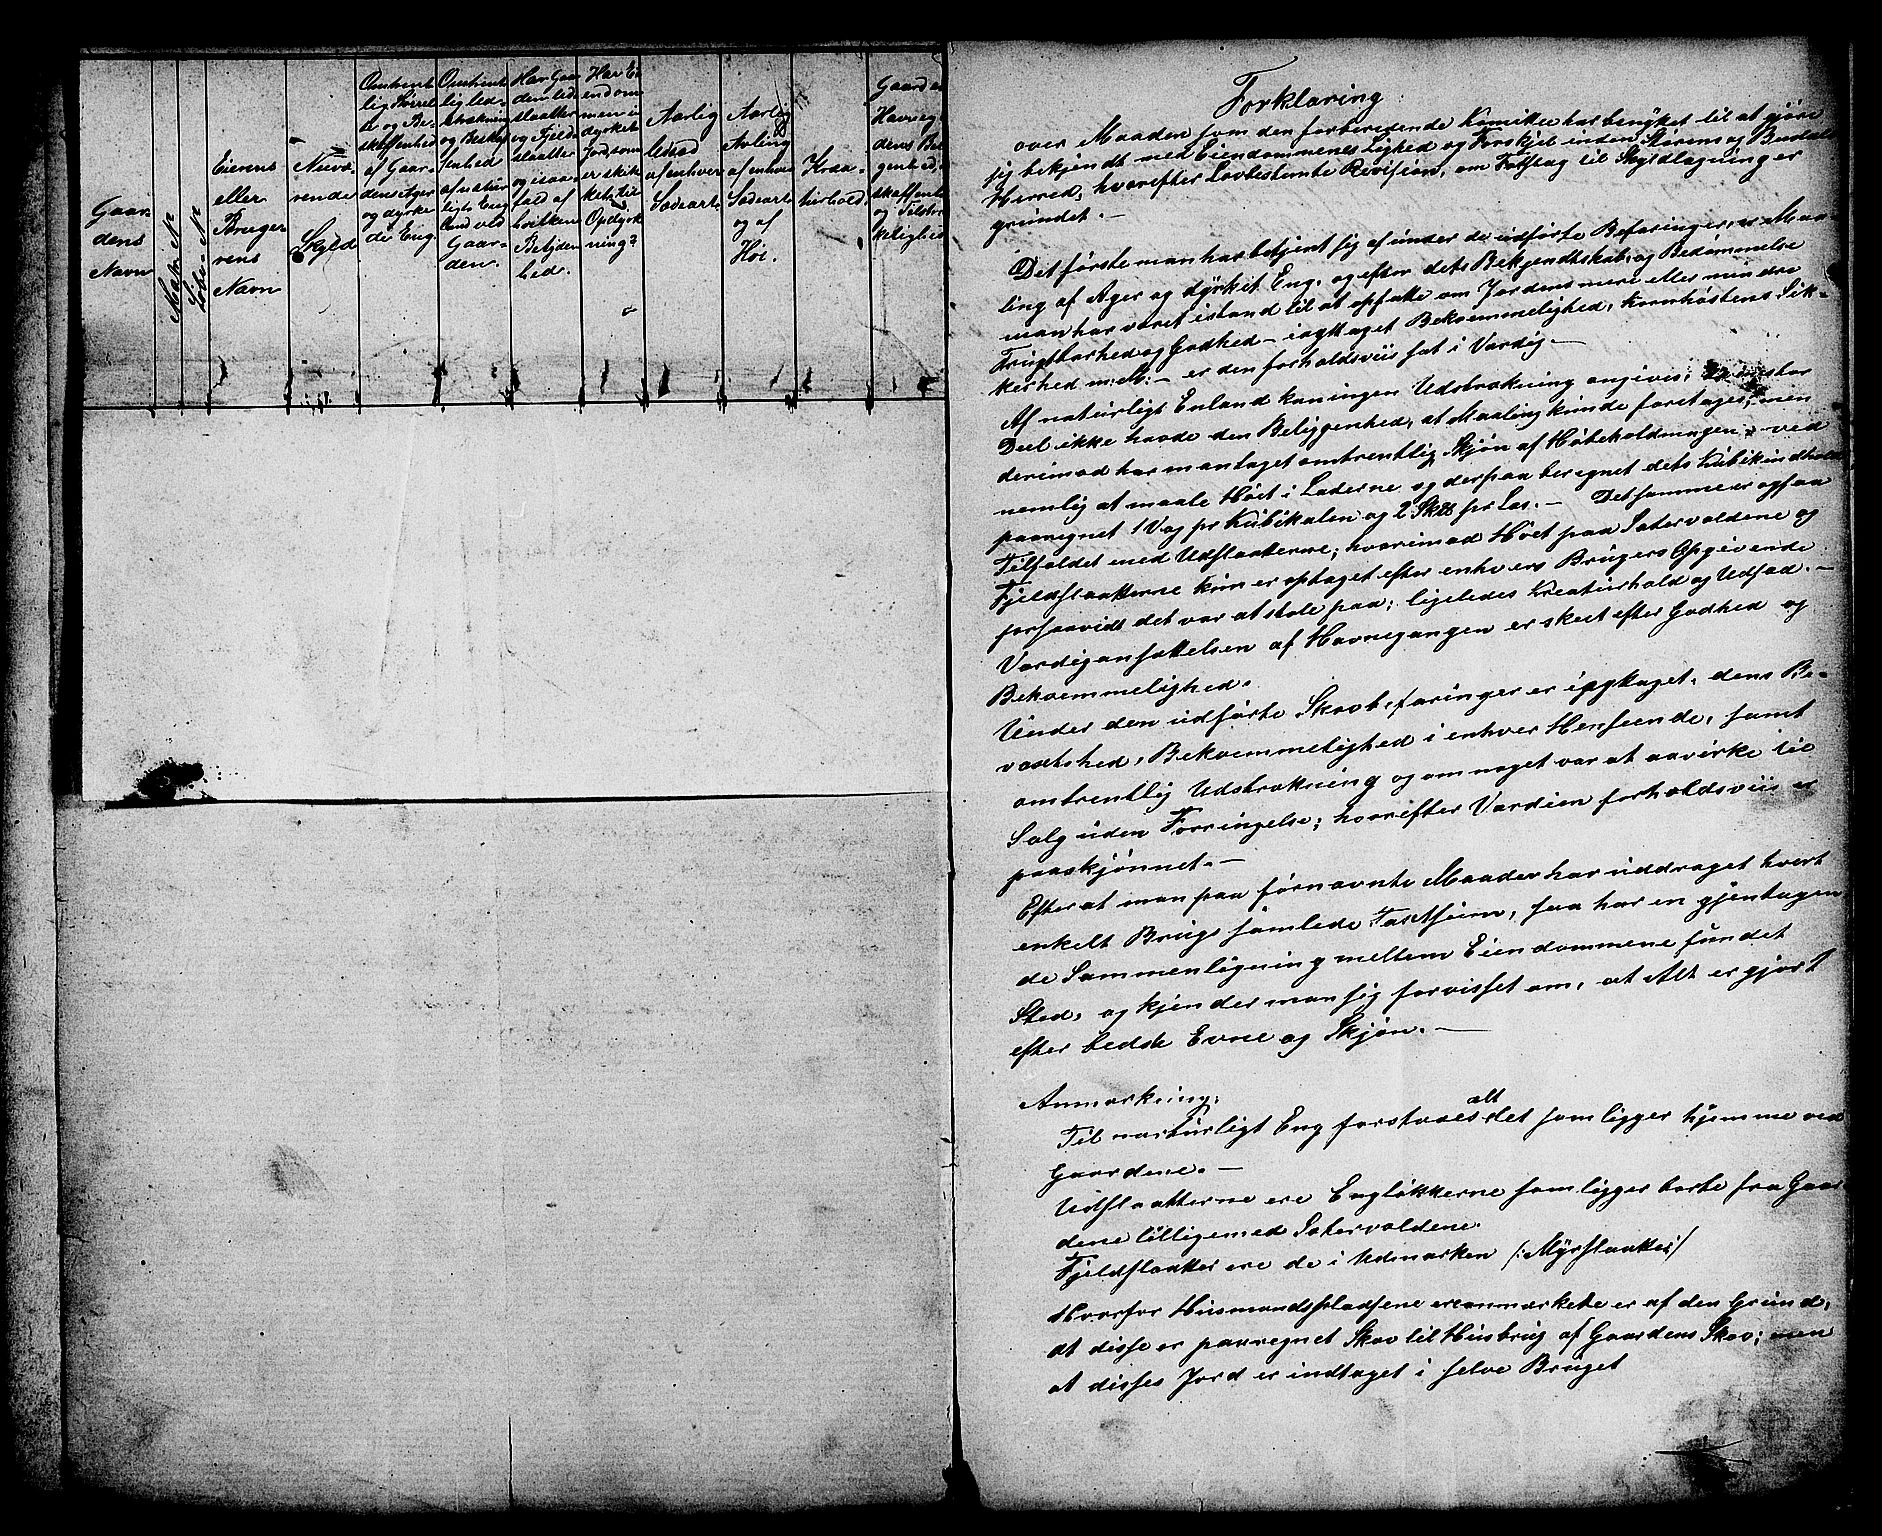 Gaar-
dens
Navn
Matr. N
Løbe-N
Eierens
eller
Bruge-
rens
Navn
Nuvæ-
rende
Skyld
Omtrent
lig Størrel
se og Be-
skaffenhed
af Gaar-
dens Ager
og dyrke
de Eng.
Omtrent
lig Ud-
strækning
og Beskaf
fenhed
af natur
ligt Eng
land ved
Gaar-
den.
Har Gaar
den Ud-
slaatter
og Fjeld
slaatter
og i saa
fald af
hvilken
Betyden
hed.
Har Ei
endom
men u
dyrket
Jord, som
er skik
ket til
Opdyrk
ning?
Aarlig
Udsæd
af enhver
Sædeart.
Aarlig
Avling
af enhver
Sædeart
og af
Høi.
Krea-
turhold.
Gaardens
Havnegang
dens Beli
genhed, Be
skaffenhed
og Tilstræk
kelighed
Forklaring
over Maaden som den forberedende Komitee har benyttet til at gjøre
sig bekjendt med Eiendommenes Lighed og Forskjel inden Størens og Budals
Herred, hvorefter Lovbestemte Revision, om Forslag til Skyldlægning er
grundet. -
Det første man har betjent sig af under de udførte Befaringer, er Maa-
ling af Ager og dyrket Eng, og efter dets Bekjendtskab og Bedømmelse
man har været istand til at opfatte om Jordens mere eller mindre
Frugtbarhed og Godhed - iagttaget Bekvemmelighed, Kornhøstens Sik-
kerhed m: M: - er den forholdsviis sat i Værdig. -
Af naturligt Enland kan ingen Udstrækning angives, da en stor
Deel ikke havde den Beliggenhed, at Maaling kunde foretages, men
derimod har man taget omtrentlig Skjøn af Høbeholdningen, ved
nemlig at maale Høet i Laderne og derpaa beregnet dets Kubikindhold
paaregnet 1 Vog pr Kubikalen og 2 Sk℔ pr Læs. - Det samme er ogsaa
Tilfældet med Udslaatterne; hvorimod Høet paa Sætervoldene og
Fjeldslaatterne kun er optaget efter enhvers Brugers Opgivende
forsaavidt det var at stole paa; ligeledes Kreaturhold og Udsæd. -
Værdigansættelsen af Havnegangen er skeet efter Godhed og
Bekvemmelighed.
Under den udførte Skovbefaringer er iagttaget, dens Be-
voxtshed, Bekvemmelighed i enhver Henseende, samt
omtrentlig Udstrækning og om noget var at aavirke til
Salg uden Forringelse; hvorefter Værdien forholdsviis er
paaskjønnet. -
Efter at man paa førnævnte Maader har uddraget hvert
enkelt Brugs samlede Taxtsum, saa har en gjentagen
de Sammenligning mellem Eiendommene fundet
Sted, og kjender man sig forvisset om, at Alt er gjort
efter bedste Evne og Skjøn. -
Anmærkning.
Til naturligt Eng forstaaes alt det som ligger hjemme ved
Gaardene. -
Udslaatterne ere Engløkkerne som ligger borte fra Gaar
dene tilligemed Sætervoldene.
Fjeldslaatter ere de i Udmarken /: Myrslaatter :/
Hvorfor Husmandspladsene ere anmærkede er af den Grund,
at disse er paaregnet Skov til Husbrug af Gaardens Skov; men
at disses Jord er indtaget i selve Bruget